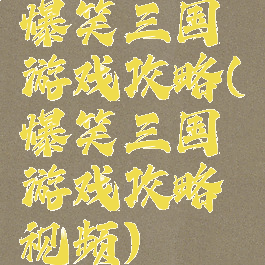 爆笑三国
游戏攻略(
爆笑三国
游戏攻略
视频)